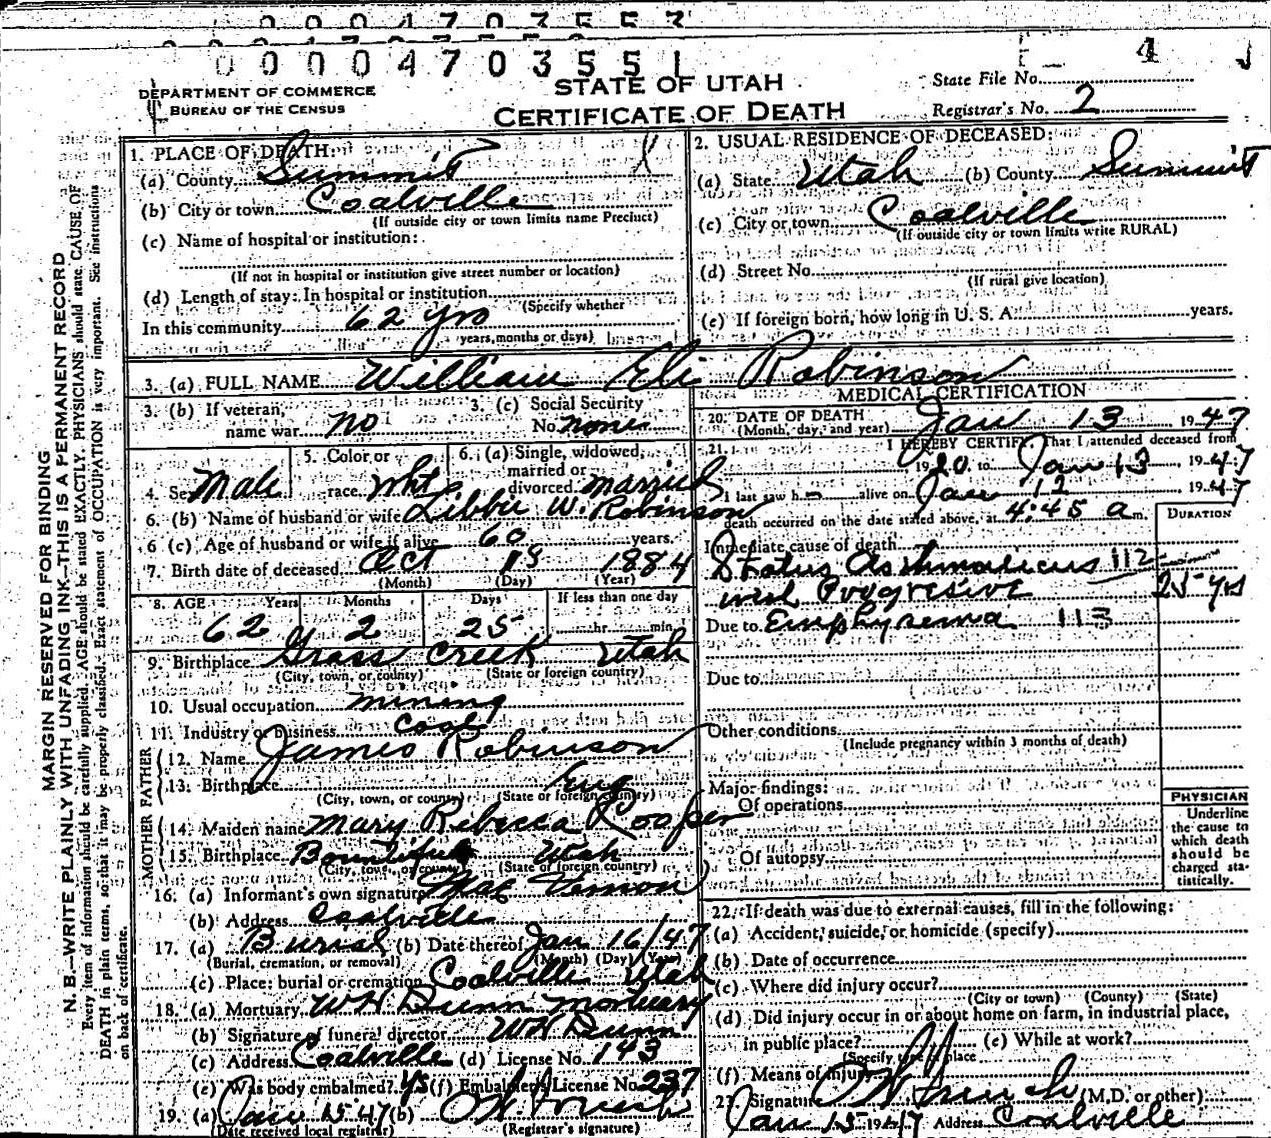 0 0 0 4 7 0 3 5 5 1
4
DEPARTMENT OF COMMERCE
BUREAU OF THE CENSUS
STATE OF UTAH
CERTIFICATE OF DEATH
State File No.
Registrar's No. 2
1. PLACE OF DEATH:
(a) County Summit
(b) City or town Coalville
(If outside city or town limits name Precinct)
(c) Name of hospital or institution:
(If not in hospital or institution give street number or location)
(d) Length of stay: In hospital or institution
(Specify whether
In this community 62 yrs
years, months or days)
2. USUAL RESIDENCE OF DECEASED:
(a) State Utah (b) County Summit
(c) City or town Coalville
(If outside city or town limits write RURAL)
(d) Street No.
(If rural give location)
(e) If foreign born, how long in U. S. A. years.
3. (a) FULL NAME William Eli Robinson
3. (b) If veteran, name war no
3. (c) Social Security No. none
4. Sex Male
5. Color or race Wht
6. (a) Single, widowed, married or divorced married
6. (b) Name of husband or wife Libbie W. Robinson
6 (c) Age of husband or wife if alive 60 years.
7. Birth date of deceased Oct 18 1884
(Month) (Day) (Year)
8. AGE Years Months Days If less than one day
62 2 25 hr. min.
9. Birthplace Grass Creek Utah
(City, town, or county) (State or foreign country)
10. Usual occupation mining
11. Industry or business coal
FATHER
12. Name James Robinson
13. Birthplace Eng
(City, town, or county) (State or foreign country)
MOTHER
14. Maiden name Mary Rebecca Cooper
15. Birthplace Bountiful Utah
(City, town, or county) (State or foreign country)
16. (a) Informant's own signature Mae Vernon
(b) Address Coalville
17. (a) Burial (b) Date thereof Jan 16/47
(Burial, cremation, or removal) (Month) (Day) (Year)
(c) Place: burial or cremation Coalville Utah
18. (a) Mortuary W H Dunn Mortuary
(b) Signature of funeral director W H Dunn
(c) Address Coalville (d) License No. 143
(e) Was body embalmed? ys (f) Embalmer's License No. 237
19. (a) Jan 15 47 (b)
(Date received local registrar) (Registrar's signature)
MEDICAL CERTIFICATION
20. DATE OF DEATH Jan 13 1947
(Month, day, and year)
21. I HEREBY CERTIFY That I attended deceased from
1920 to Jan 13, 1947
I last saw h alive on Jan 12 1947
death occurred on the date stated above, at 4:45 a m.
DURATION
Immediate cause of death
Status Asthmaticus 112
with Progresive 25 yrs
Due to Emphysema 113
Due to
Other conditions
(Include pregnancy within 3 months of death)
Major findings:
Of operations
Of autopsy
PHYSICIAN
Underline
the cause to
which death
should be
charged sta-
tistically.
22. If death was due to external causes, fill in the following:
(a) Accident, suicide, or homicide (specify)
(b) Date of occurrence
(c) Where did injury occur?
(City or town) (County) (State)
(d) Did injury occur in or about home on farm, in industrial place,
in public place? (e) While at work?
(Specify type of place
(f) Means of injury
Signature (M.D. or other)
Jan 15 1947 Address Coalville
MARGIN RESERVED FOR BINDING
N. B.—WRITE PLAINLY WITH UNFADING INK—THIS IS A PERMANENT RECORD
Every item of information should be carefully supplied. AGE should be stated EXACTLY. PHYSICIANS should state CAUSE OF
DEATH in plain terms, so that it may be properly classified. Exact statement of OCCUPATION is very important. See instructions
on back of certificate.